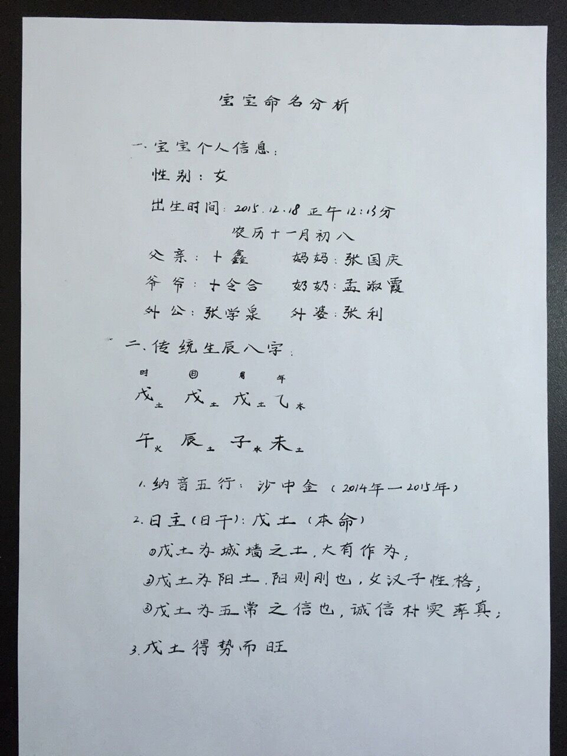 宝宝命名分析
一.宝宝个人信息:
性别:女
出生时间:2015.12.18 正午12:15分
农历十一月初八
父亲:卜鑫 妈妈:张国庆
爷爷:卜令合 奶奶:孟淑霞
外公:张学泉 外婆:张利
二.传统生辰八字:
时 日 月 年
戊土 戊土 戊土 乙木
午火 辰土 子水 未土
1.纳音五行:沙中金(2014年—2015年)
2.日主(日干):戊土(本命)
①戊土为城墙之土,大有作为;
②戊土为阳土.阳则刚也,女汉子性格;
③戊土为五常之信也,诚信朴实率真;
3.戊土得势而旺